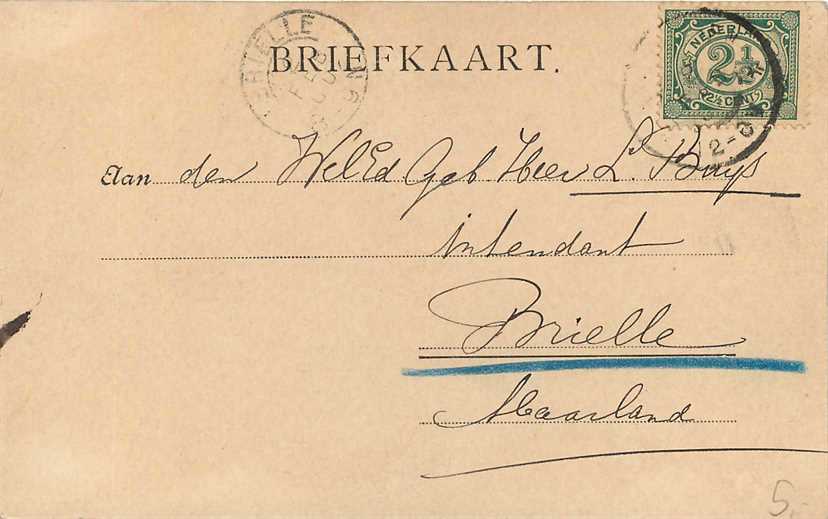 BRIEFKAART.
BRIELLE
NEDERLAND
2½
2½ CENT
Aan den WelEd. Geb Heer L. Buys
intendant
Brielle
Maarland
5,-